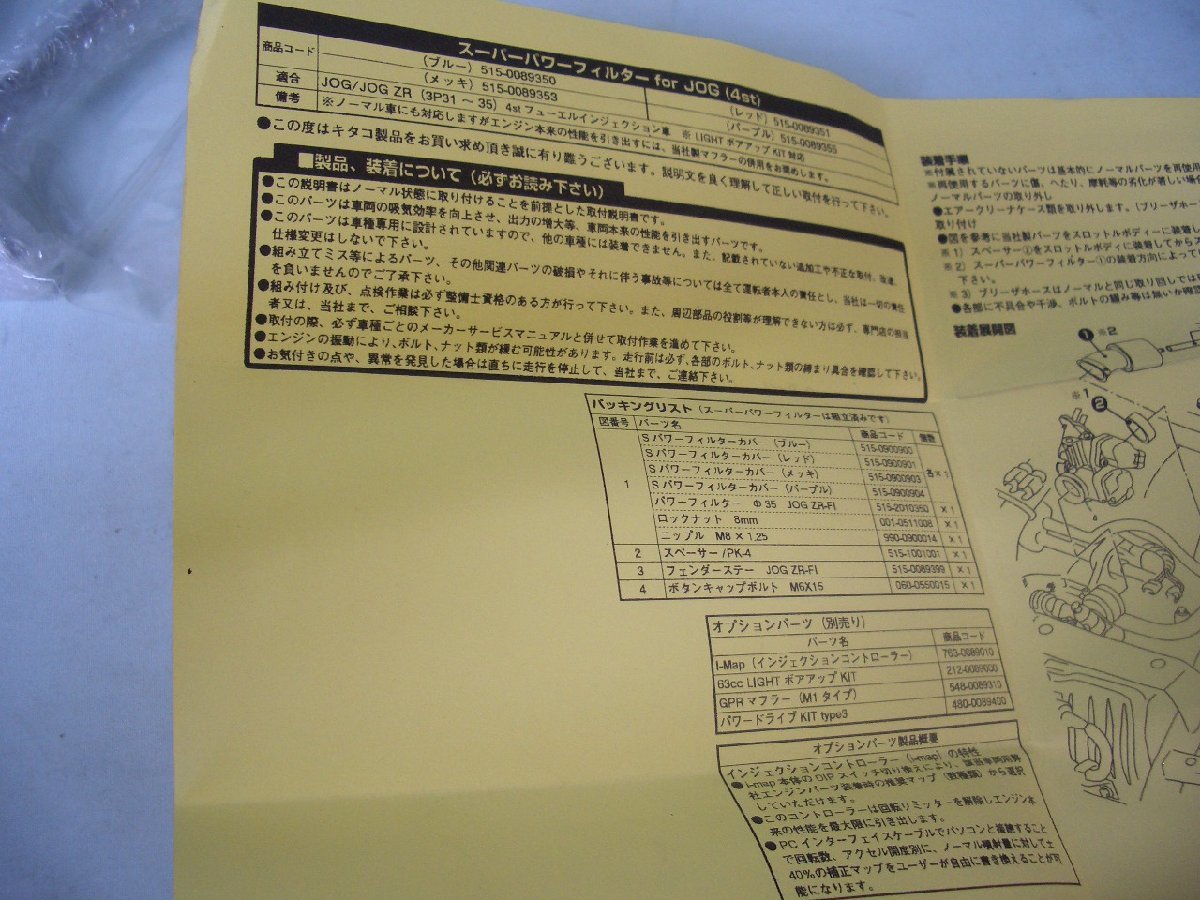 スーパーパワーフィルター for JOG (4st)
商品コード
(ブルー) 515-0089350
(レッド) 515-0089351
(メッキ) 515-0089353
(パープル) 515-0089355
適合
JOG/JOG ZR (3P31 ~ 35) 4st フューエルインジェクション車 ※ LIGHT ボアアップ KIT 対応
備考
※ノーマル車にも対応しますがエンジン本来の性能を引き出すには、当社製マフラーの併用をお奨めします。
●この度はキタコ製品をお買い求め頂き誠に有り難うございます。説明文を良く理解して正しい取付を行って下さい。
■製品、装着について(必ずお読み下さい)
●この説明書はノーマル状態に取り付けることを前提とした取付説明書です。
●このパーツは車両の吸気効率を向上させ、出力の増大等、車両本来の性能を引き出すパーツです。
●このパーツは車種専用に設計されていますので、他の車種には装着できません。また、記載されていない追加工や不正な取付、改造、
仕様変更はしないで下さい。
●組み立てミス等によるパーツ、その他関連パーツの破損やそれに伴う事故等については全て運転者本人の責任とし、当社は一切の責任
を負いませんのでご了承下さい。
●組み付け及び、点検作業は必ず整備士資格のある方が行って下さい。また、周辺部品の役割等が理解できない方は必ず、専門店の担当
者又は、当社まで、ご相談下さい。
●取付の際、必ず車種ごとのメーカーサービスマニュアルと併せて取付作業を進めて下さい。
●エンジンの振動により、ボルト、ナット類が緩む可能性があります。走行前は必ず、各部のボルト、ナット類の締まり具合を確認して下さい。
●お気付きの点や、異常を発見した場合は直ちに走行を停止して、当社まで、ご連絡下さい。
パッキングリスト(スーパーパワーフィルターは組立済みです)
図番号 パーツ名 商品コード 個数
1
S パワーフィルターカバー (ブルー) 515-0900900
S パワーフィルターカバー (レッド) 515-0900901
S パワーフィルターカバー (メッキ) 515-0900903
S パワーフィルターカバー (パープル) 515-0900904
各×1
パワーフィルター Φ35 JOG ZR-FI 515-2010350 ×1
ロックナット 8mm 001-0511008 ×1
ニップル M8×1.25 990-0900014 ×1
2 スペーサー/PK-4 515-1001001 ×1
3 フェンダーステー JOG ZR-FI 515-0089399 ×1
4 ボタンキャップボルト M6X15 060-0550015 ×1
オプションパーツ(別売り)
パーツ名 商品コード
I-Map (インジェクションコントローラー) 763-0089010
63cc LIGHT ボアアップ KIT 212-0089000
GPR マフラー (M1タイプ) 548-0089310
パワードライブ KIT type3 480-0089400
オプションパーツ製品概要
インジェクションコントローラー (i-map) の特性
●i-map 本体の DIP スイッチ切り換えにより、
社エンジンパーツ装着時の推奨マップ(数種類)から選択
していただけます。
●このコントローラーは回転リミッターを解除しエンジン本
来の性能を最大限に引き出します。
●PC インターフェイスケーブルでパソコンと接続すること
で回転数、アクセル開度別に、ノーマル噴射量に対して±
40%の補正マップをユーザーが自由に書き換えることが可
能になります。
装着手順
※付属されていないパーツは基本的にノーマルパーツを再使用
※再使用するパーツに傷、へたり、摩耗等の劣化が著しい場合
ノーマルパーツの取り外し
●エアークリーナケース類を取り外します。(ブリーザホー
取り付け
●図を参考に当社製パーツをスロットルボディーに装着し
※1) スペーサー①をスロットルボディに装着してから
※2) スーパーパワーフィルター①の装着方向によって
下さい。
※3) ブリーザホースはノーマルと同じ取り回しでは
●各部に不具合や干渉、ボルトの緩み等は無いか確認
装着展開図
1 ※2
※1
2